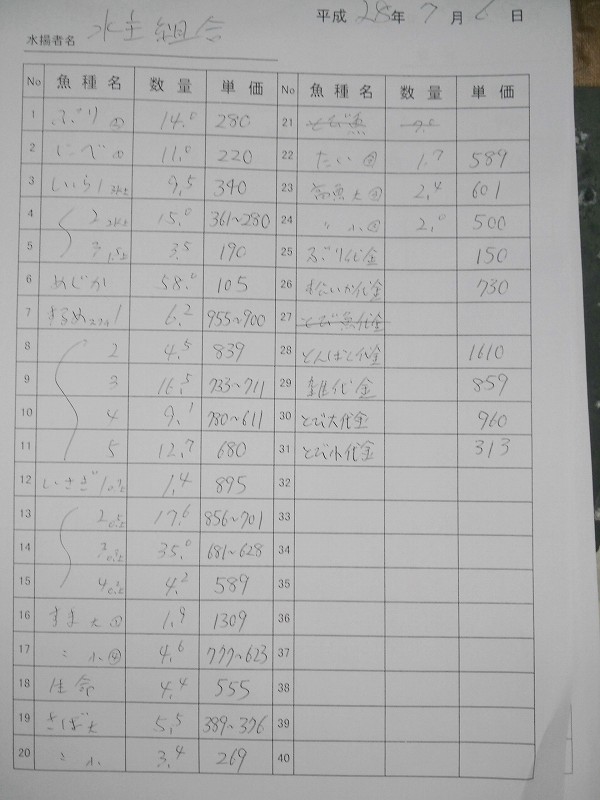 平成 28年 7月 6日
水揚者名 水主組合
No 魚種名 数量 単価 No 魚種名 数量 単価
1 ぶり 14.0 280
2 にべ 11.0 220
3 しいら1 9.5 340
4 2 15.0 361~280
5 3 3.5 190
6 めじか 58.0 105
7 するめ 1 6.2 955~900
8 2 4.5 839
9 3 16.5 733~711
10 4 9.1 780~611
11 5 12.7 680
12 いさぎ1 1.4 895
13 2 17.6 856~701
14 3 35.0 681~628
15 4 4.2 589
16 すま大 1.9 1309
17 〃 小 4.6 777~623
18 生命 4.4 555
19 さば大 5.5 389~376
20 〃 小 3.4 269
21 とび魚
22 たい 1.7 589
23 大 2.4 601
24 〃 小 2.0 500
25 ぶり代金 150
26 松いか代金 730
27 とび魚代金
28 とんぼし代金 1610
29 雑代金 859
30 とび大代金 960
31 とび小代金 313
32
33
34
35
36
37
38
39
40